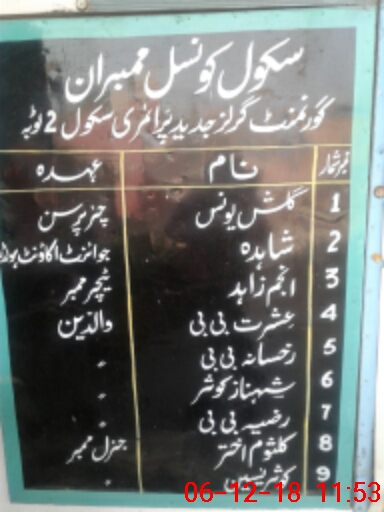 سکول کونسل ممبران
گورنمنٹ گرلز جدید پرائمری سکول 2 لوبہ
نمبر شمار نام عہدہ
1 گلشن یونس چیئر پرسن
2 شاہدہ جوائنٹ اکاؤنٹ
3 انجم زاہد ٹیچر ممبر
4 عشرت بی بی والدین
5 رخسانہ بی بی 〃
6 شہناز کوثر 〃
7 رضیہ بی بی 〃
8 کلثوم اختر جنرل ممبر
9 کوثر نسرین 〃
06-12-18 11:53